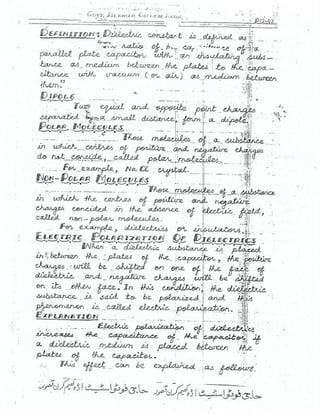 DEFINITION: Dielectric constant is defined as
the ratio of the capacitance of a
parallel plate capacitor with an insulating subs-
tance as medium between the plates to the capa-
citance with vacuum (or air) as medium between
them."
DIPOLE
Two equal and opposite point charges
separated by a small distance, form a dipole.
POLAR MOLECULES
Those molecules of a substance
in which centres of positive and negative charges
do not coincide, called polar molecules.
For example, Na Cl crystal.
NON-POLAR MOLECULES
Those molecules of a substance
in which the centres of positive and negative
charges concided in the absence of electric field,
called non-polar molecules.
For example, dielectrics or insulators.
ELECTRIC POLARIZATION OF DIELECTRICS
When a dielectric substance is placed
in between the plates of the capacitor, the positive
charges will be shifted on one of the face of
dielectric and negative charges will be shifted
on its other face. In this condition, the dielectric
substance is said to be polarized and this
phenomenon is called electric polarization.
EXPLANATION
Electric polarization of dielectrics
increases the capacitance of the capacitor if
a dielectric medium is placed between the
plates of the capacitor.
This effect can be explained as follows.